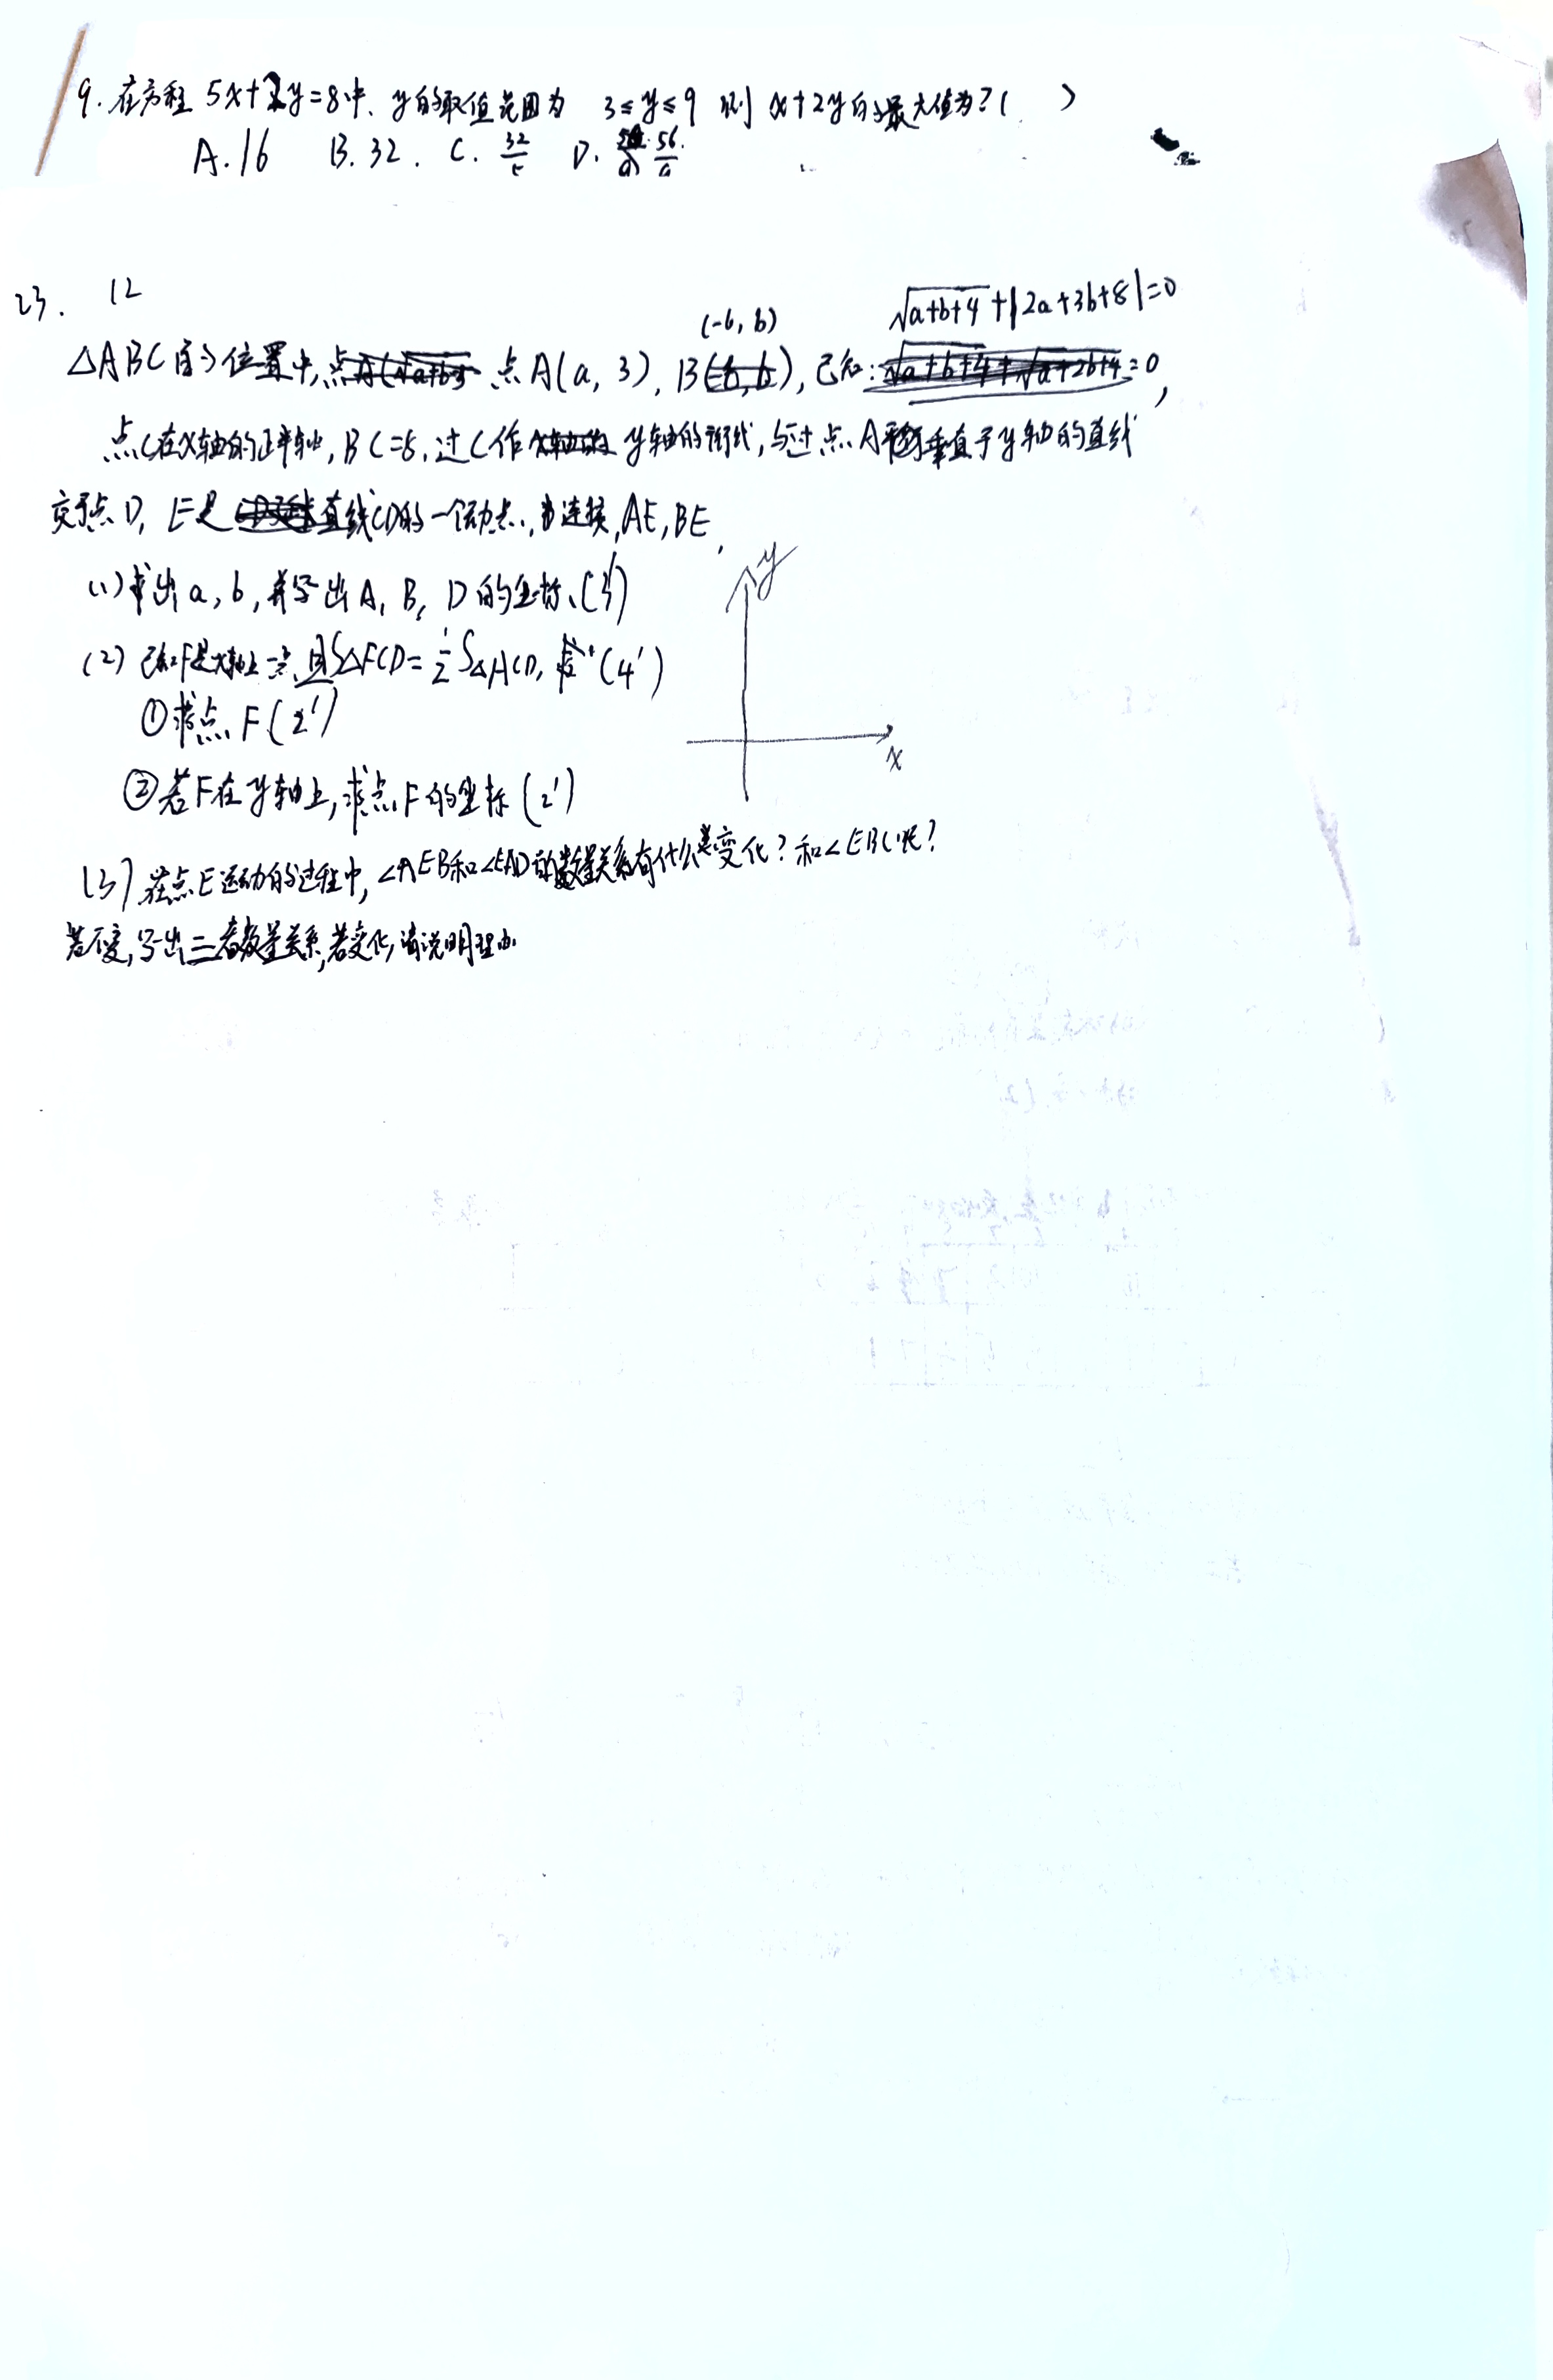 9. 在方程 5x+2y=8中、y的取值范围为 3≤y≤9 则 x+2y的最大值为?( )
A.16 B.32. C. 32/5 D. 56/
23. 12
√a+b+4 +|2a+3b+8|=0
(-6, b)
△ABC的位置中,点A(a, 3), B, 已知: =0,
点C在x轴的正半轴, BC=8, 过C作y轴的平行线, 与过点A垂直于y轴的直线
交于点D, E是直线CD的一个动点, 连接, AE, BE,
(1)求出a, b, 并写出A, B, D的坐标、(3')
(2) 已知F是x轴上一点, 且S△FCD=1/2 S△ACD, (4')
①求点F(2')
②若F在y轴上,求点F的坐标(2')
y
x
(3)在点E运动的过程中, ∠AEB和∠EAD的数量关系有什么变化? 和∠EBC呢?
若不变,写出三者数量关系,若变化,请说明理由.